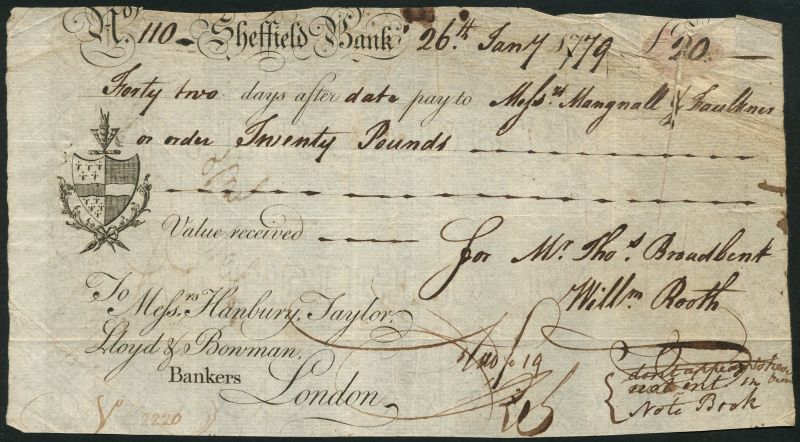 No. 110 Sheffield Bank 26.th Jany 1779 £20
Forty two days after date pay to Messrs. Mangnall & Faulkner
or order Twenty Pounds
Value received
for Mr Thos. Broadbent
Willm Rooth
To
Messrs Hanbury, Taylor,
Lloyd & Bowman,
Bankers London
19
dont appear
not ent in
Note Book
No 2220